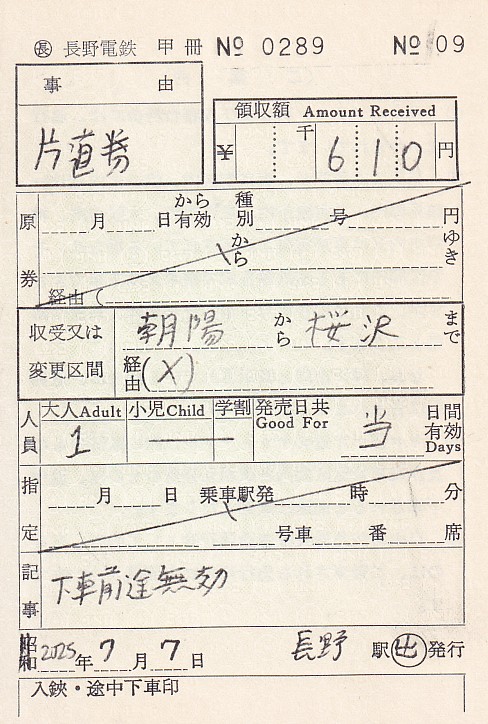 長 長野電鉄 甲冊 № 0289 № 09
事 由
片道券
領収額 Amount Received
¥ 千 610 円
原券
月 日から有効 種別 号 円
から ゆき
経由(
収受又は変更区間
朝陽 から 桜沢 まで
経由(X)
人員
大人Adult 小児Child 学割 発売日共 Good For 日間有効 Days
1 当
指定
月 日 乗車駅発 時 分
号車 番 席
記事
下車前途無効
昭和 2025年 7月 7日 長野 駅 出 発行
入鋏・途中下車印